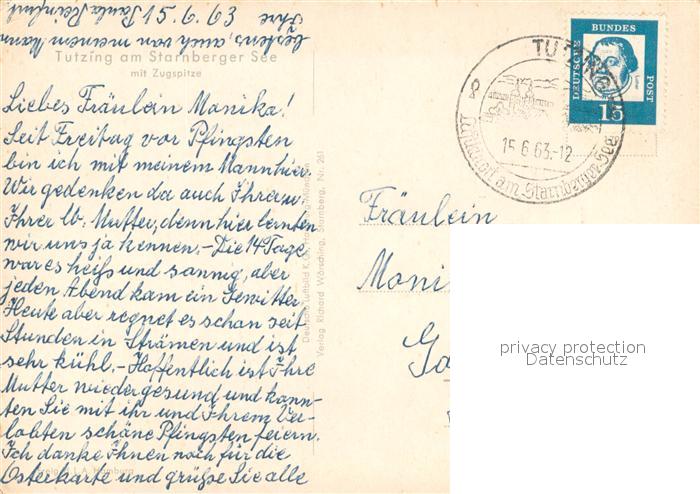 Tutzing am Starnberger See
mit Zugspitze
Liebes Fräulein Monika!
Seit Freitag vor Pfingsten
bin ich mit meinem Mann hier.
Wir gedenken da auch Ihrer u.
Ihrer lb. Mutter, denn hier lernten
wir uns ja kennen. – Die 14 Tage
war es heiß und sonnig, aber
jeden Abend kam ein Gewitter.
Heute aber regnet es schon seit
Stunden in Strömen und ist
sehr kühl. – Hoffentlich ist Ihre
Mutter wieder gesund und konn-
ten Sie mit ihr und Ihrem Ver-
lobten schöne Pfingsten feiern.
Ich danke Ihnen noch für die
Osterkarte und grüße Sie alle
bestens, auch von meinem Mann
Ihre
Paula
15.6.63
Verlag Richard Wörsching, Starnberg, Nr. 261
Deutsche Luftbild K.G.
Hamburg
DEUTSCHE
BUNDES
POST
15
TUTZING
15.6.63.-12
Luftkurort am Starnberger See
Fräulein
Moni
Ga
privacy protection
Datenschutz